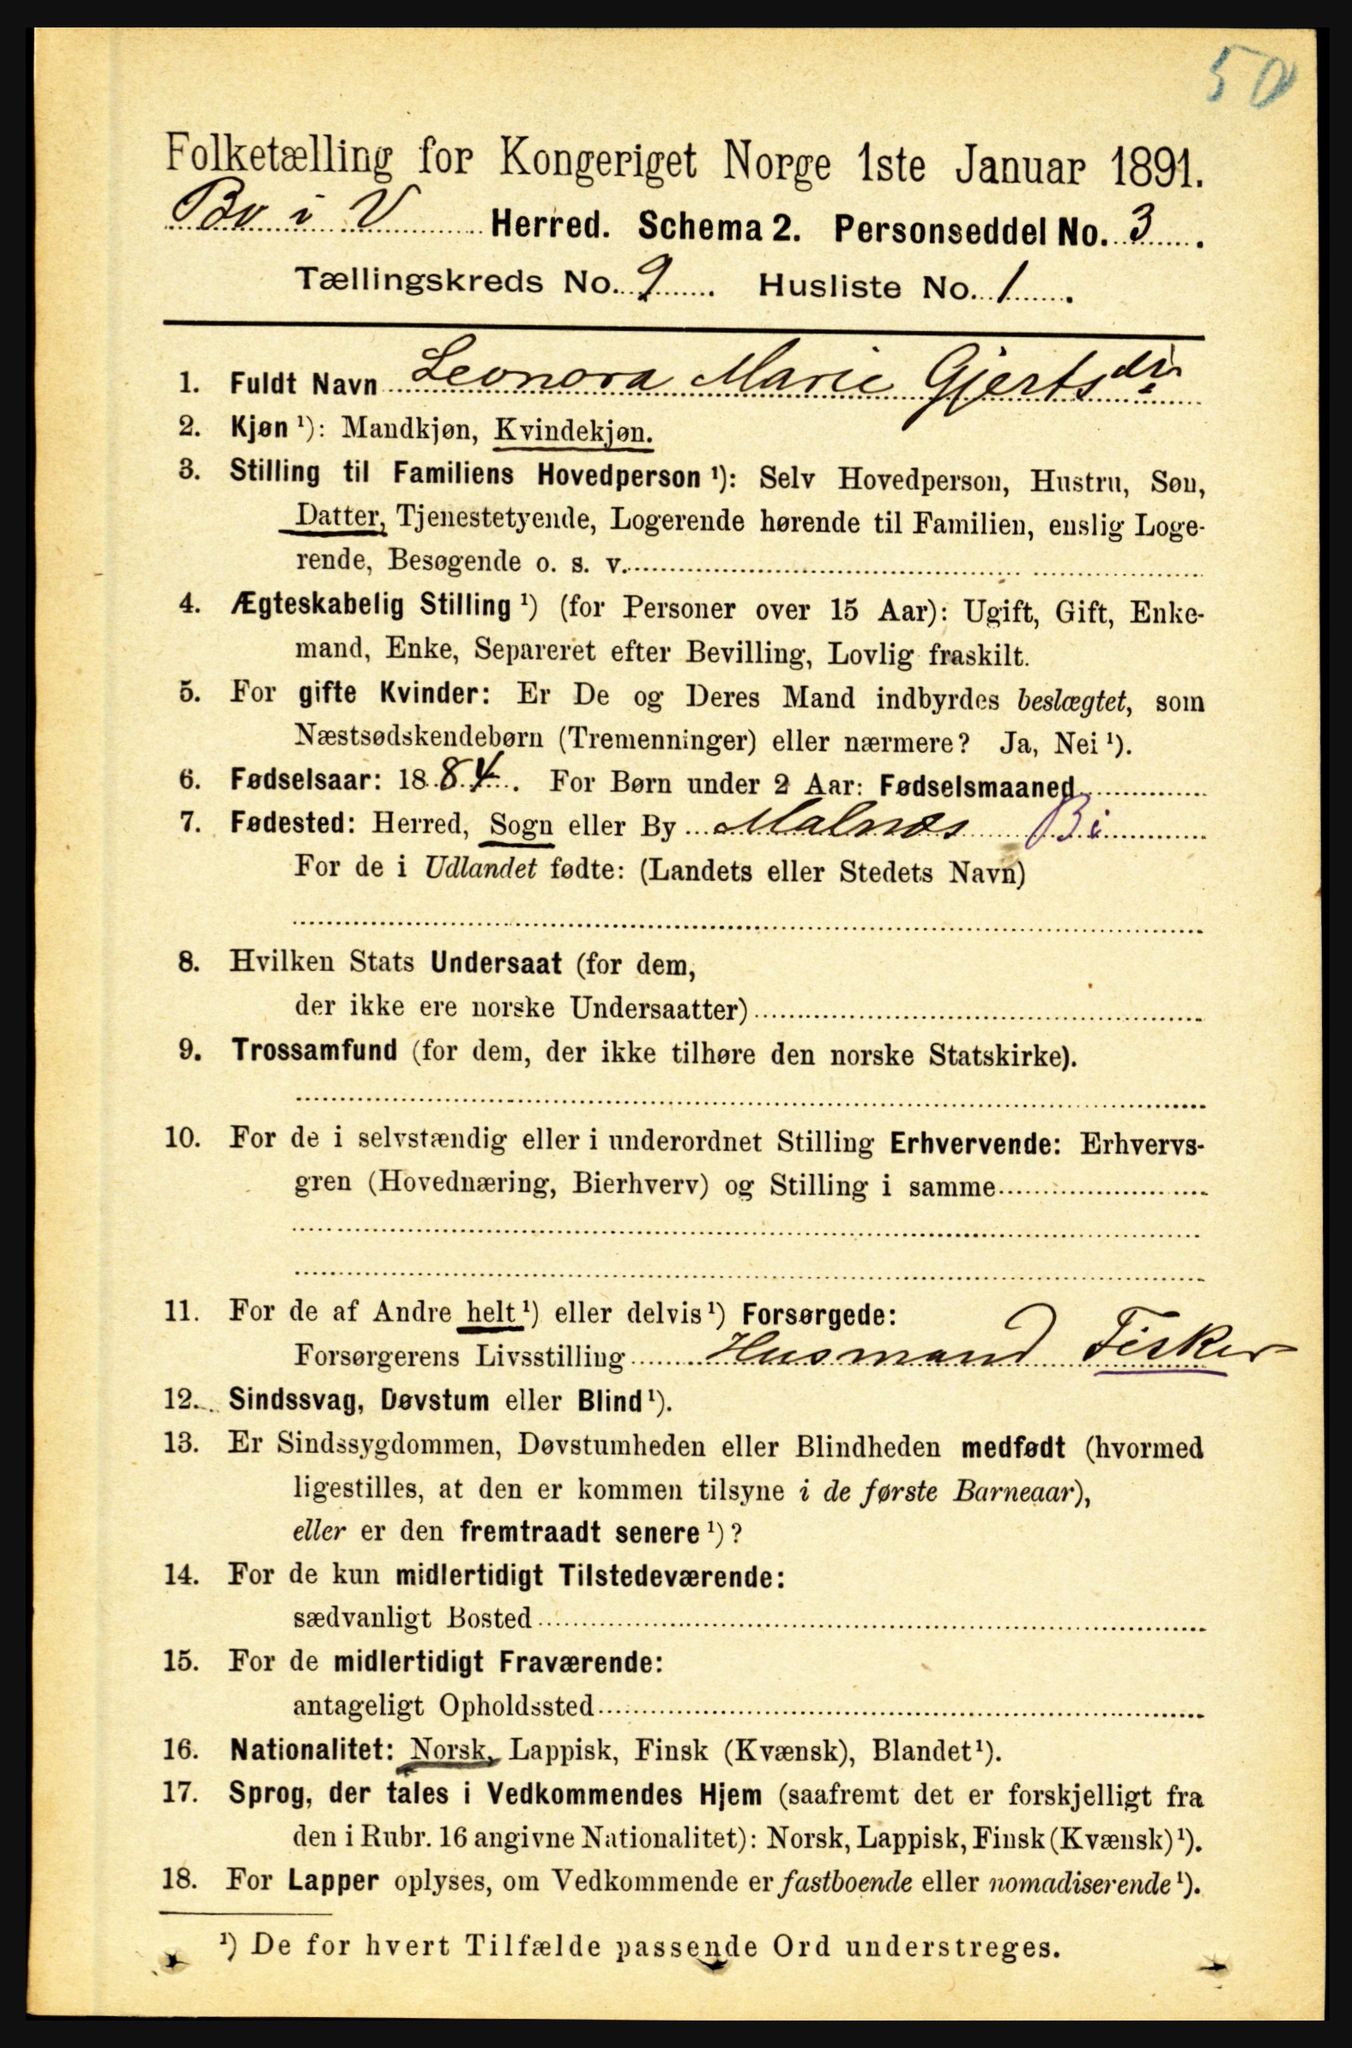 50
Folketælling for Kongeriget Norge 1ste Januar 1891.
Bø i V Herred. Schema 2. Personseddel No. 3.
Tællingskreds No. 9. Husliste No. 1.
1. Fuldt Navn Leonora Marie Gjertsdtr
2. Kjøn ¹): Mandkjøn, Kvindekjøn.
3. Stilling til Familiens Hovedperson ¹): Selv Hovedperson, Hustru, Søn,
Datter, Tjenestetyende, Logerende hørende til Familien, enslig Loge-
rende, Besøgende o. s. v.
4. Ægteskabelig Stilling ¹) (for Personer over 15 Aar): Ugift, Gift, Enke-
mand, Enke, Separeret efter Bevilling, Lovlig fraskilt.
5. For gifte Kvinder: Er De og Deres Mand indbyrdes beslægtet, som
Næstsødskendebørn (Tremenninger) eller nærmere? Ja, Nei ¹).
6. Fødselsaar: 1884. For Børn under 2 Aar: Fødselsmaaned
7. Fødested: Herred, Sogn eller By Malnæs Bø
For de i Udlandet fødte: (Landets eller Stedets Navn)
8. Hvilken Stats Undersaat (for dem,
der ikke ere norske Undersaatter)
9. Trossamfund (for dem, der ikke tilhøre den norske Statskirke).
10. For de i selvstændig eller i underordnet Stilling Erhvervende: Erhvervs-
gren (Hovednæring, Bierhverv) og Stilling i samme
11. For de af Andre helt ¹) eller delvis ¹) Forsørgede:
Forsørgerens Livsstilling Husmand Fisker
12. Sindssvag, Døvstum eller Blind ¹).
13. Er Sindssygdommen, Døvstumheden eller Blindheden medfødt (hvormed
ligestilles, at den er kommen tilsyne i de første Barneaar),
eller er den fremtraadt senere ¹)?
14. For de kun midlertidigt Tilstedeværende:
sædvanligt Bosted
15. For de midlertidigt Fraværende:
antageligt Opholdssted
16. Nationalitet: Norsk, Lappisk, Finsk (Kvænsk), Blandet ¹).
17. Sprog, der tales i Vedkommendes Hjem (saafremt det er forskjelligt fra
den i Rubr. 16 angivne Nationalitet): Norsk, Lappisk, Finsk (Kvænsk) ¹).
18. For Lapper oplyses, om Vedkommende er fastboende eller nomadiserende ¹).
¹) De for hvert Tilfælde passende Ord understreges.